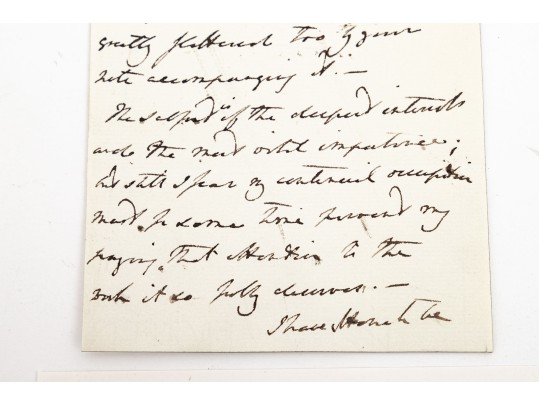 greatly flattered too by your
note accompanying it. —
The subject is of the deepest interest
and the most vital importance;
but still I fear my continual occupation
must for some time prevent my
paying that attention to the
work it so fully deserves. —
I have the honor to be